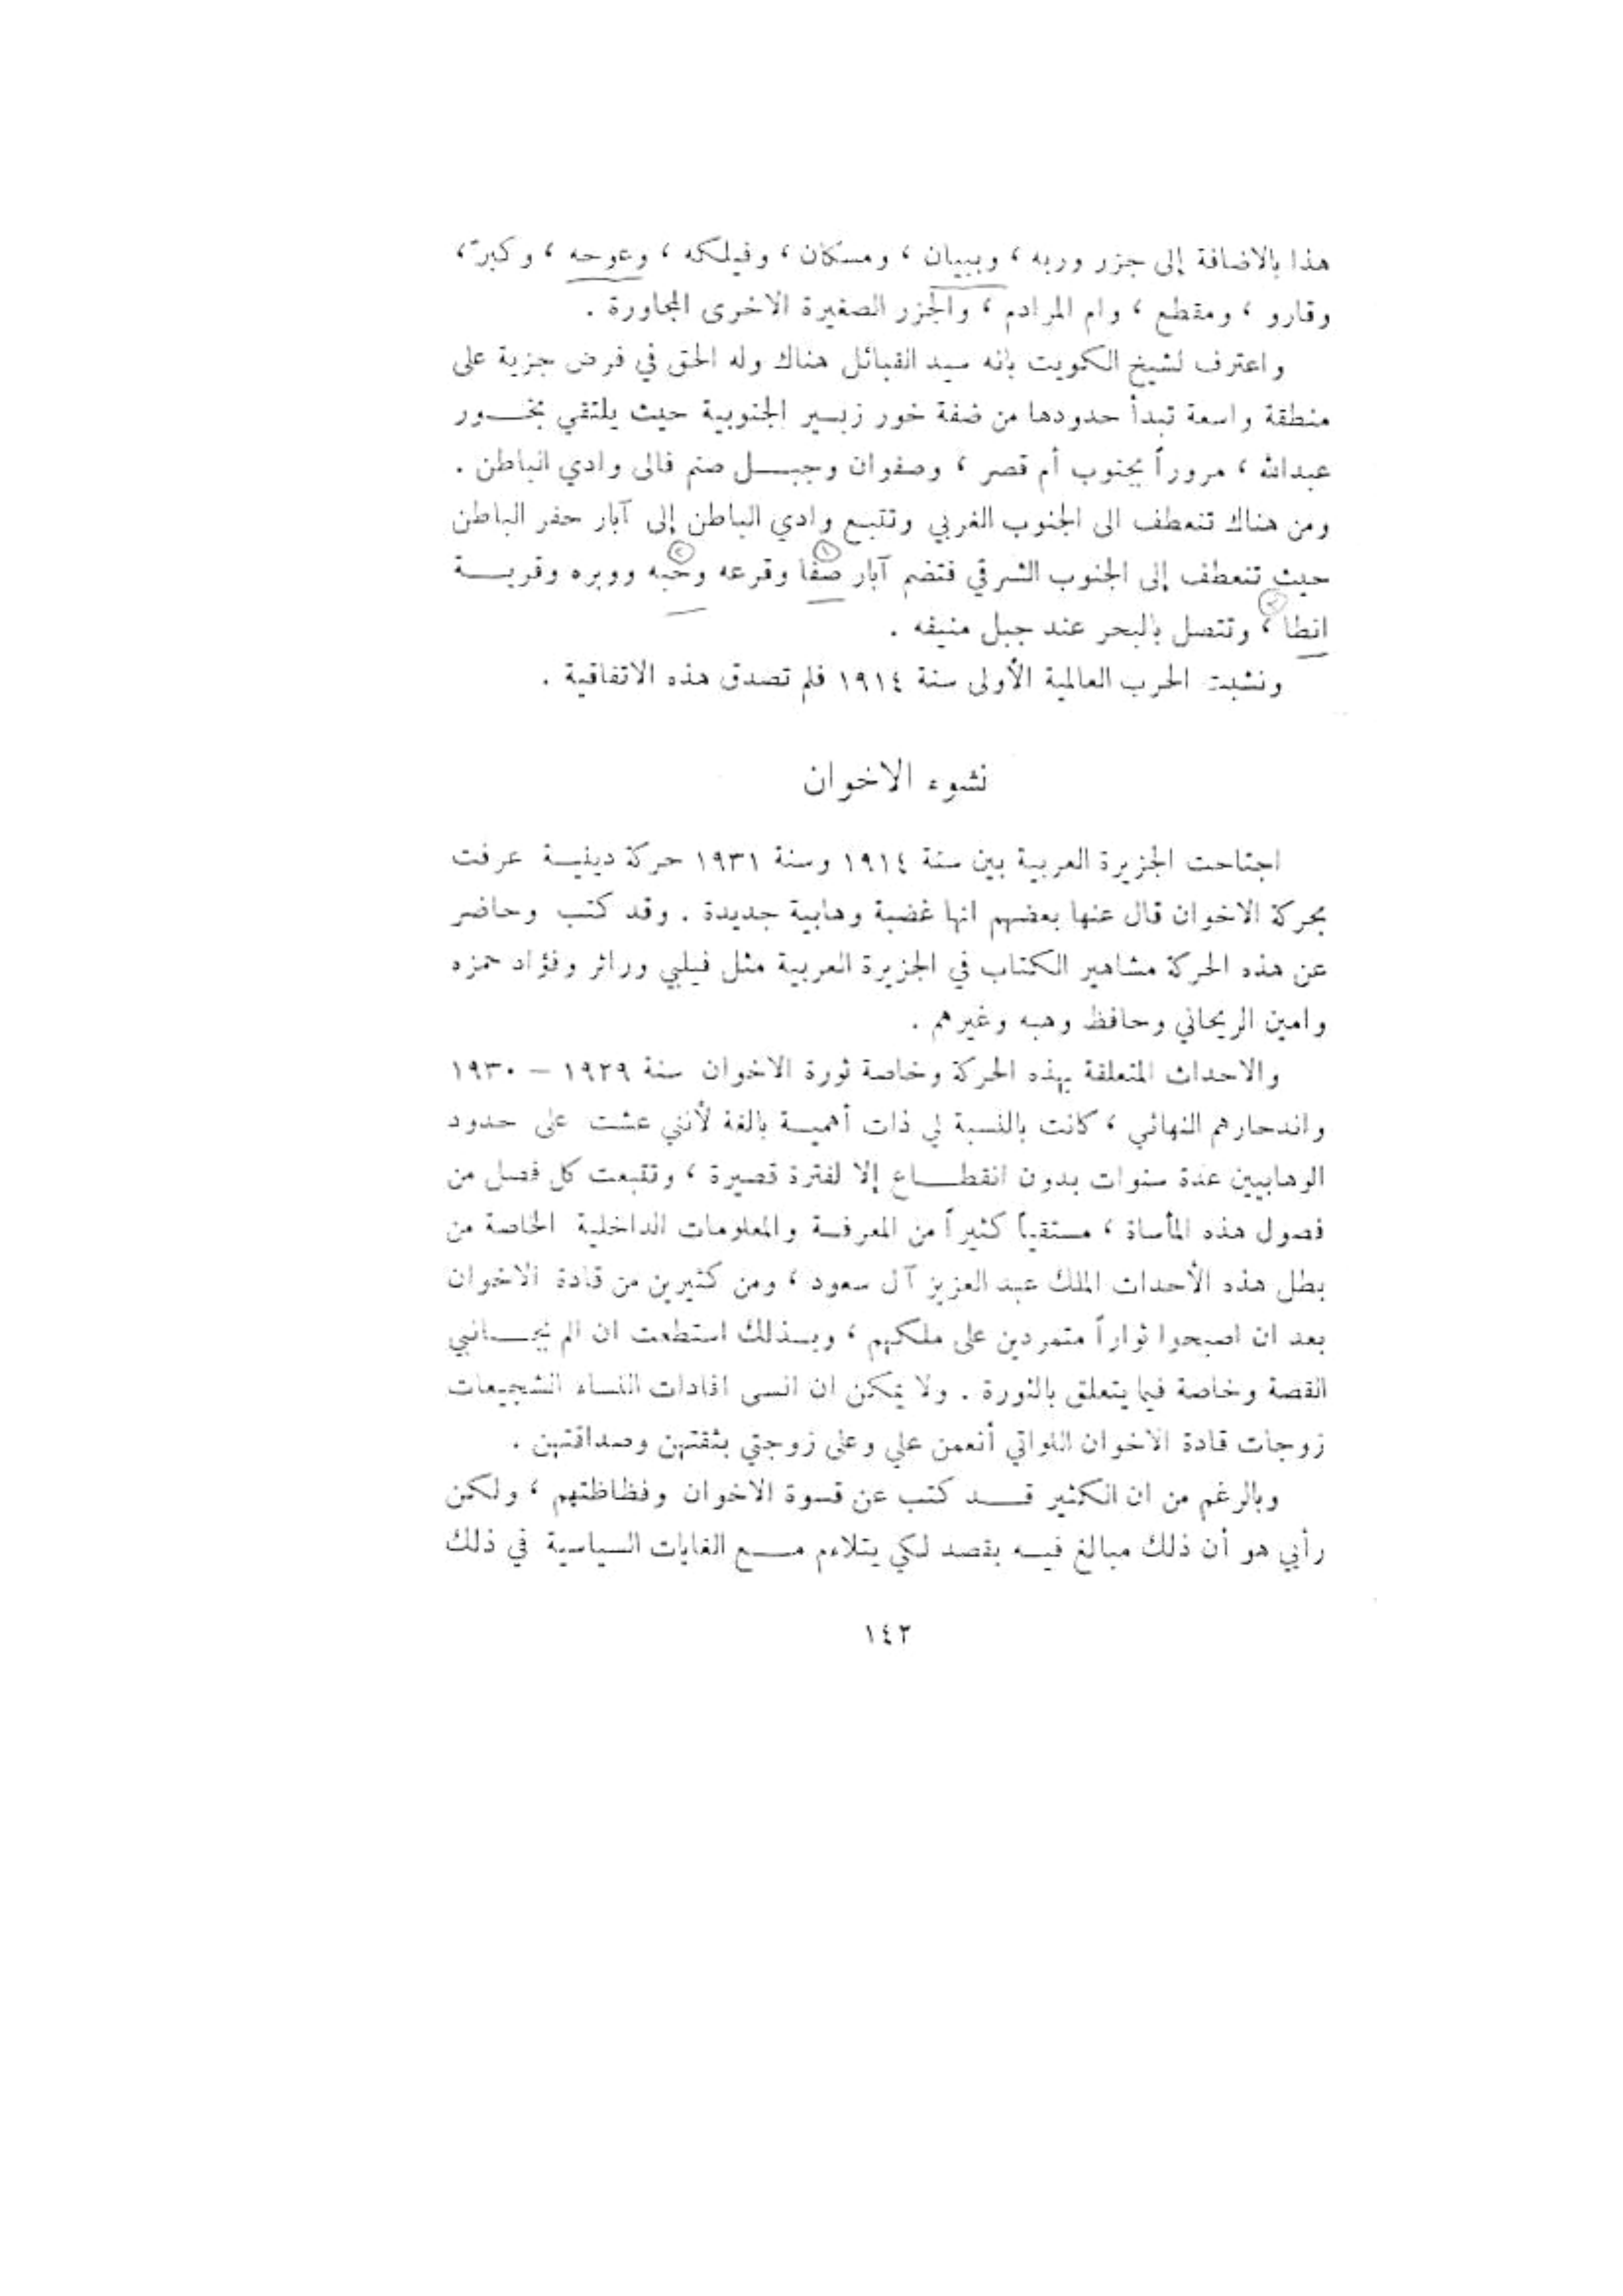 هذا بالاضافة إلى جزر وربه ، وبيبيان ، ومسكان ، وفيلكه ، وعوحه ، وكبرّ ،
وقارو ، ومقطع ، وام المرادم ، والجزر الصغيرة الاخرى المجاورة .
واعترف لشيخ الكويت بانه سيد القبائل هناك وله الحق في فرض جزية على
منطقة واسعة تبدأ حدودها من ضفة خور زبسير الجنوبية حيث يلتقي بخور
عبدالله ، مروراً بجنوب أم قصر ، وصفوان وجبل صنم فالى وادي الباطن .
ومن هناك تنعطف الى الجنوب الغربي وتتبع وادي الباطن إلى آبار حفر الباطن
حيث تنعطف إلى الجنوب الشرقي فتضم آبار صفا وقرعه وحبه ووبره وقرية
انطا ، وتتصل بالبحر عند جبل منيفه .
ونشبت الحرب العالمية الأولى سنة ١٩١٤ فلم تصدق هذه الاتفاقية .
نشوء الاخوان
اجتاحت الجزيرة العربية بين سنة ١٩١٤ وسنة ١٩٣١ حركة دينية عرفت
بحركة الاخوان قال عنها بعضهم انها غضبة وهابية جديدة . وقد كتب وحاضر
عن هذه الحركة مشاهير الكتاب في الجزيرة العربية مثل فيلبي وراتر وفؤاد حمزه
وامين الريحاني وحافظ وهبه وغيرهم .
والاحداث المتعلقة بهذه الحركة وخاصة ثورة الاخوان سنة ١٩٢٩ – ١٩٣٠
واندحارهم النهائي ، كانت بالنسبة لي ذات أهمية بالغة لأنني عشت على حدود
الوهابيين عدة سنوات بدون انقطاع إلا لفترة قصيرة ، وتتبعت كل فصل من
فصول هذه المأساة ، مستقياً كثيراً من المعرفة والمعلومات الداخلية الخاصة من
بطل هذه الأحداث الملك عبد العزيز آل سعود ، ومن كثيرين من قادة الاخوان
بعد ان اصبحوا ثواراً متمردين على ملكهم ، وبذلك استطعت ان الم بجانبي
القصة وخاصة فيما يتعلق بالثورة . ولا يمكن ان انسى افادات النساء الشجيعات
زوجات قادة الاخوان اللواتي أنعمن علي وعلى زوجتي بثقتهن وصداقتهن .
وبالرغم من ان الكثير قد كتب عن قسوة الاخوان وفظاظتهم ، ولكن
رأيي هو أن ذلك مبالغ فيه بقصد لكي يتلاءم مع الغايات السياسية في ذلك
١٤٣